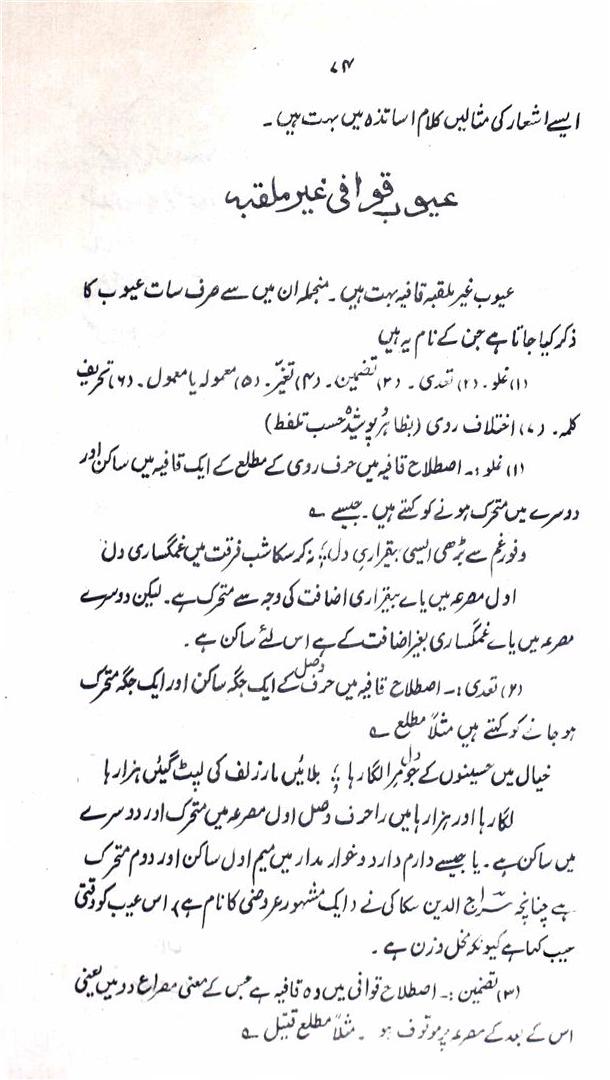 ۷۴
ایسے اشعار کی مثالیں کلام اساتذہ میں بہت ہیں۔
عیوب قوافی غیر ملقبہ
عیوب غیر ملقبہ قافیہ بہت ہیں۔ منجملہ ان میں سے صرف سات عیوب کا
ذکر کیا جاتا ہے جن کے نام یہ ہیں
(۱) غلو۔ (۲) تعدی۔ (۳) تضمین۔ (۴) تغیّر۔ (۵) معمولہ یا معمول۔ (۶) تحریف
کلمہ۔ (۷) اختلاف روی (بظاہر پوشیدہ حسب تلفظ)
(۱) غلو :۔ اصطلاح قافیہ میں حرف روی کے مطلع کے ایک قافیہ میں ساکن اور
دوسرے میں متحرک ہونے کو کہتے ہیں۔ جیسے ؎
وفور غم سے بڑھی ایسی بیقراریِ دل ؛ نہ کر سکا شب فرقت میں غمگساری دل
اول مصرعہ میں یاے بیقراری اضافت کی وجہ سے متحرک ہے۔ لیکن دوسرے
مصرعہ میں یاے غمگساری بغیر اضافت کے ہے اس لئے ساکن ہے۔
(۲) تعدی :۔ اصطلاح قافیہ میں حرف وصل کے ایک جگہ ساکن اور ایک جگہ متحرک
ہو جانے کو کہتے ہیں مثلاً مطلع ؎
خیال میں حسینوں کے جو دل مرا لگا رہا ؛ بلائیں مار زلف کی لپٹ گئیں ہزار ہا
لگا رہا اور ہزار ہا میں را حرف وصل اول مصرعہ میں متحرک اور دوسرے
میں ساکن ہے۔ یا جیسے دارم دارد و خوار مدار میں میم اول ساکن اور دوم متحرک
ہے چنانچہ سراج الدین سکاکی نے (ایک مشہور عروضی کا نام ہے) اس عیب کو وقتی
عیب کہا ہے کیونکہ مخل وزن ہے۔
(۳) تضمین :۔ اصطلاح قوافی میں وہ قافیہ ہے جس کے معنی مصراع دو میں یعنی
اس کے بعد کے مصرعہ پر موقوف ہو۔ مثلاً مطلع قتیل ؎